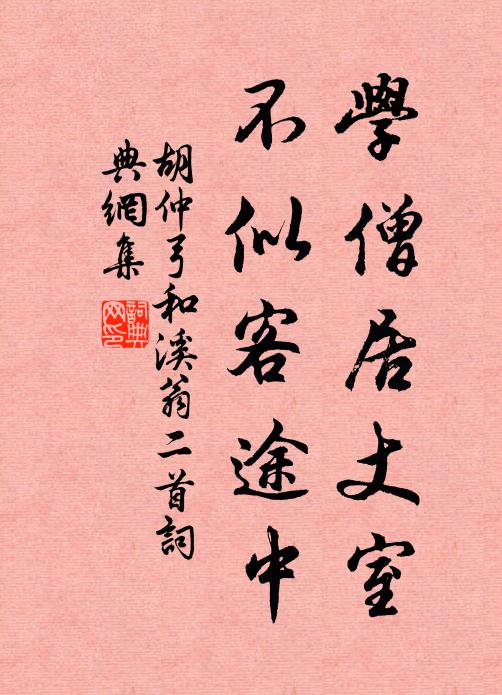 學僧居丈室
不似客途中
胡仲弓和溪翁二首詞
典網集
詞典网印